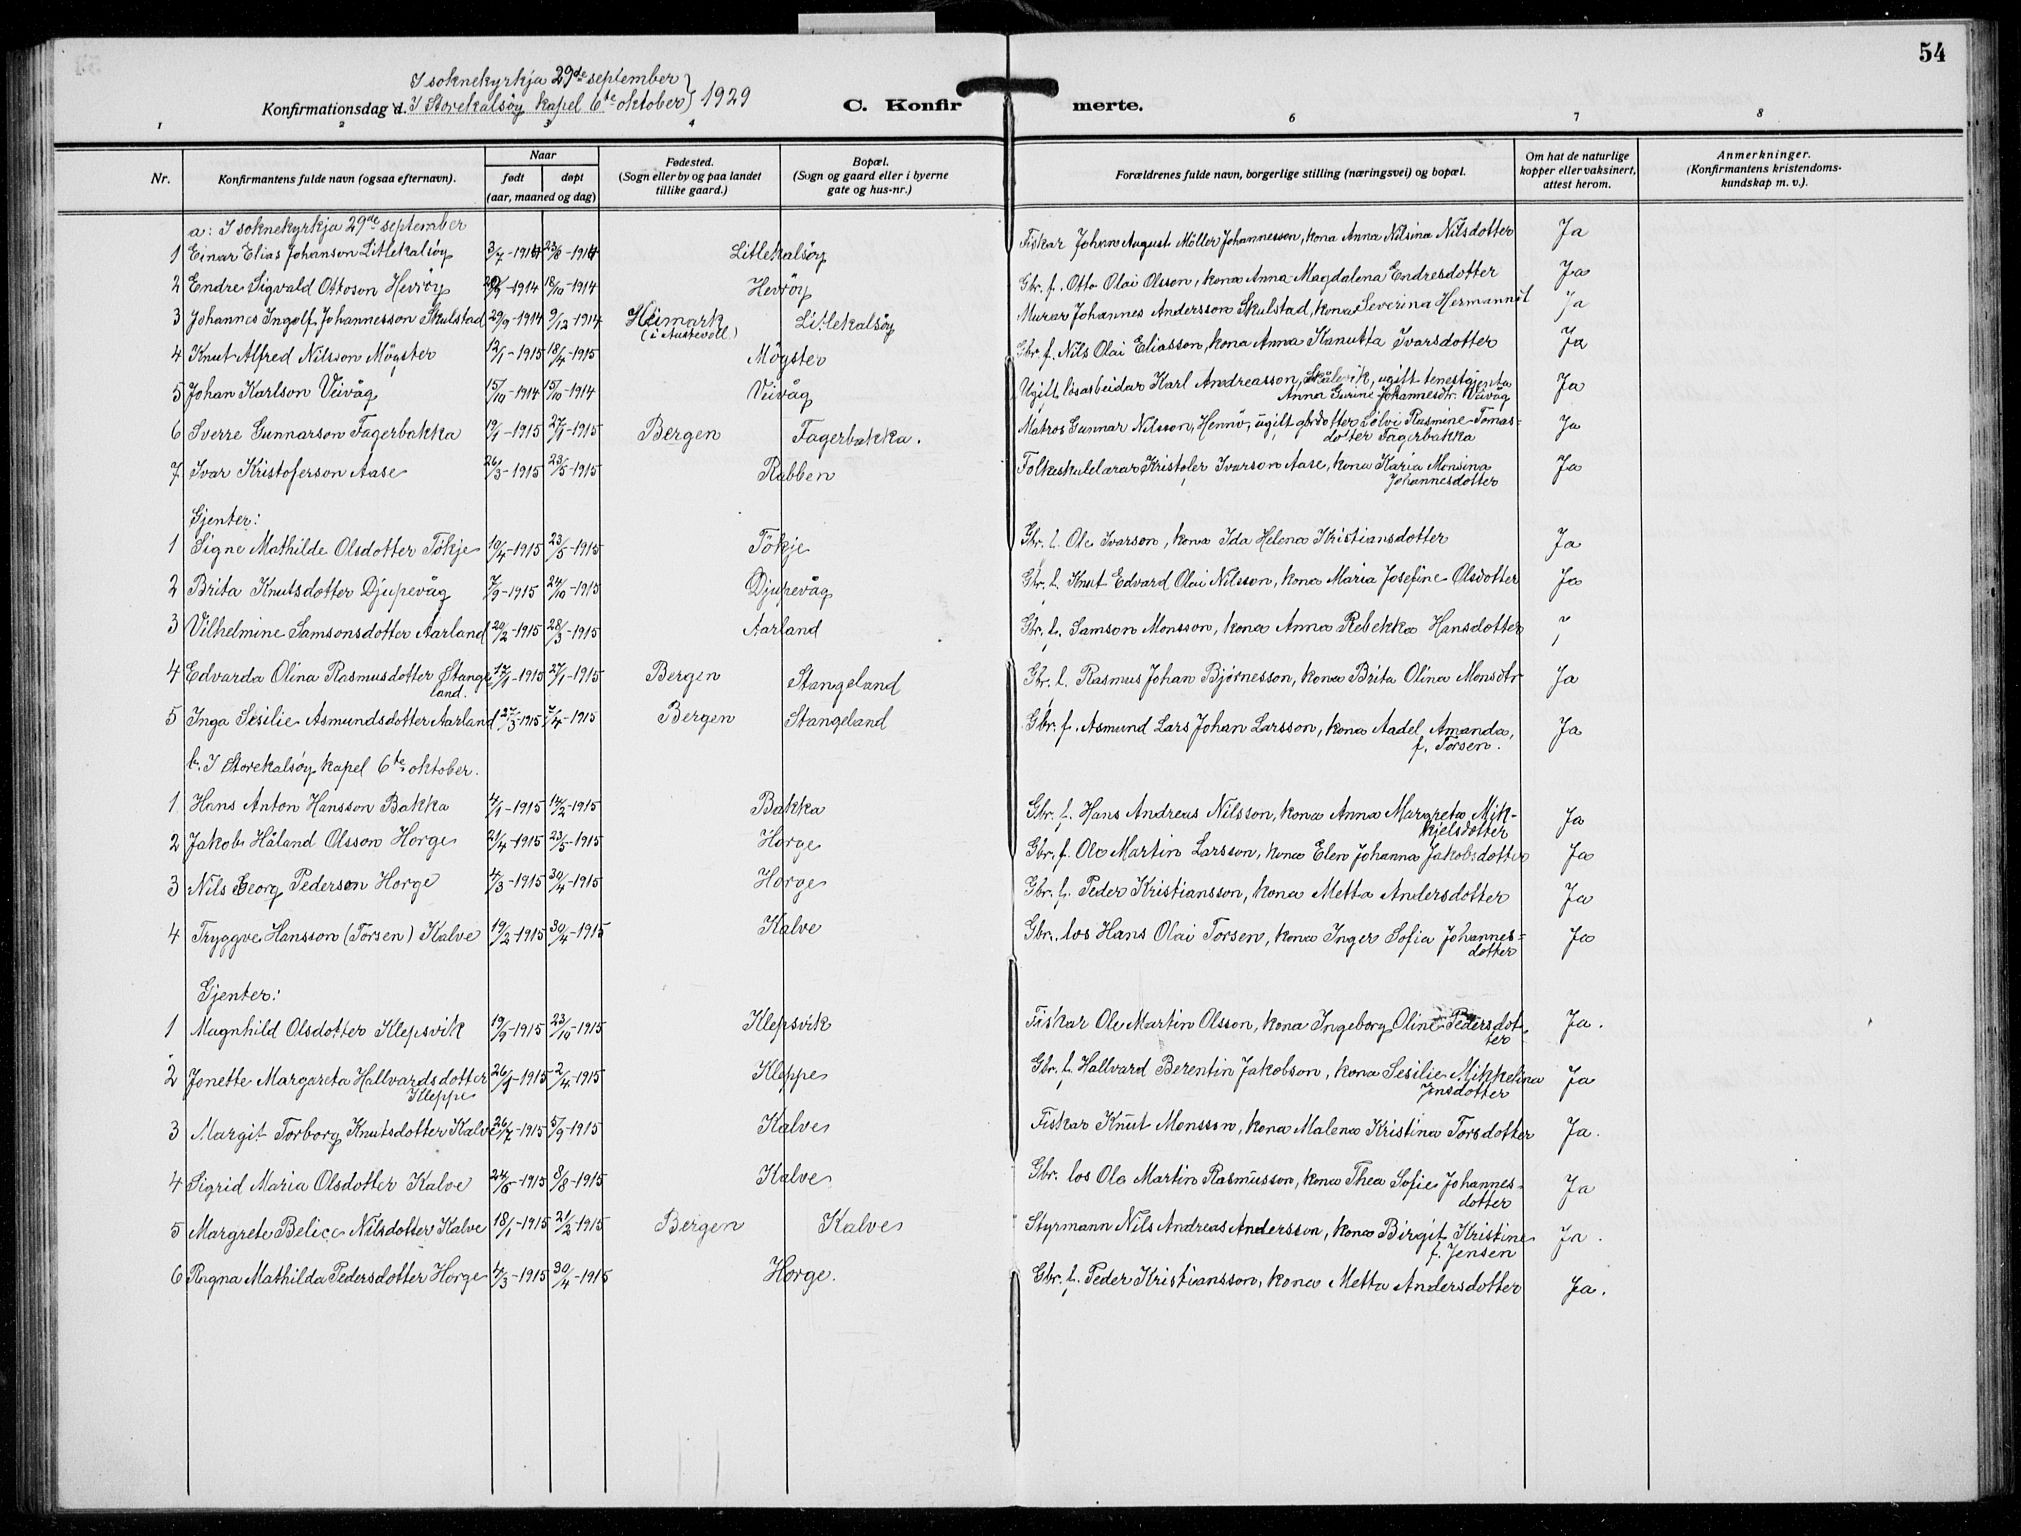 54
I soknekyrkja 29de september
Konfirmationsdag d. I Storekalsøy kapel 6te oktober } 1929
C. Konfir merte.
1 2 3 4 6 7 8
Nr. Konfirmantens fulde navn (ogsaa efternavn). Naar Fødested. Bopæl. Forældrenes fulde navn, borgerlige stilling (næringsvei) og bopæl. Om hat de naturlige Anmerkninger.
født døpt (Sogn eller by og paa landet (Sogn og gaard eller i byerne kopper eller vaksinert, (Konfirmantens kristendoms-
(aar, maaned og dag) tillike gaard.) gate og hus-nr.) attest herom. kundskap m. v.).
a: I soknekyrkja 29de september
1 Einar Elias Johanson Litlekalsöy 3/7-1914 23/8-1914 Litlekalsöy Fiskar Johan August Möller Johannesson, kona Anna Nilsina Nilsdotter Ja
2 Endre Sigvald Ottoson Hevröy -1914 18/10-1914 Hevröy Gbr. f. Otto Olai Olsson, kona Anna Magdalena Endresdotter Ja
3 Johannes Ingolf Johannesson Skulstad 29/9-1914 9/12-1914 Heimark Litlekalsöy Murar Johannes Andersson Skulstad, kona Severina Hermannsd Ja
(i Austevoll)
4 Knut Alfred Nilsson Mögster 12/1-1915 18/4-1915 Mögster Gbr. f. Nils Olai Eliasson, kona Anna Kanutta Ivarsdotter Ja
5 Johan Karlson Veivåg 15/10-1914 15/10-1914 Veivåg Ugift lösarbeidar Karl Andreasson, Skålevik, ugift tenestgjenta Ja
Anna Gurine Johannesdtr. Veivåg
6 Sverre Gunnarson Fagerbakka 19/1-1915 27/1-1915 Bergen Fagerbakka. Matros Gunnar Nilsson, Hennö, ugift gbrdotter Sölvi Rasmine Tomas- Ja
dotter Fagerbakka
7 Ivar Kristoferson Aase 26/3-1915 23/5-1915 Rabben Folkeskulelærar Kristofer Ivarson Aase, kona Karia Monsina Ja
Johannesdotter
Gjenter:
1 Signe Mathilde Olsdotter Tökje 10/4-1915 23/5-1915 Tökje Gbr. f. Ole Ivarson, kona Ida Helena Kristiansdotter Ja
2 Brita Knutsdotter Djupevåg 7/9-1915 24/10-1915 Djupevåg Gbr. f. Knut Edvard Olai Nilsson, kona Maria Josefine Olsdotter Ja
3 Vilhelmine Samsonsdotter Aarland 20/2-1915 28/3-1915 Aarland Gbr. f. Samson Monsson, kona Anna Rebekka Hansdotter ?
4 Edvarda Olina Rasmusdotter Stange 17/1-1915 27/1-1915 Bergen Stangeland Gbr. f. Rasmus Johan Bjørnesson, kona Brita Olina Monsdtr Ja
land.
5 Inga Sesilie Asmundsdotter Aarland 27/3-1915 7/4-1915 Bergen Stangeland Gbr. f. Asmund Lars Johan Larsson, kona Aadel Amanda, Ja
f. Torsen.
b. I Storekalsöy kapel 6te oktober.
1 Hans Anton Hansson Bakka 4/1-1915 14/2-1915 Bakka Gbr. f. Hans Andreas Nilsson, kona Anna Margreta Mik- Ja
kjelsdotter
2 Jakob Håland Olsson Horge 21/4-1915 23/5-1915 Horge Gbr. f. Ole Martin Larsson, kona Elen Johanna Jakobsdotter Ja
3 Nils Georg Pederson Horge 4/3-1915 30/4-1915 Horge Gbr. f. Peder Kristiansson, kona Metta Andersdotter Ja
4 Tryggve Hansson (Torsen) Kalve 19/2-1915 30/4-1915 Kalve Gbr. los Hans Olai Torsen, kona Inger Sofia Johannes- Ja
dotter
Gjenter:
1 Magnhild Olsdotter Klepsvik 19/9-1915 23/10-1915 Klepsvik Fiskar Ole Martin Olsson, kona Ingeborg Oline Pedersdot- Ja.
ter
2 Jonette Margareta Hallvardsdotter -1915 2/4-1915 Kleppe Gbr. f. Hallvard Berentin Jakobson, kona Sesilie Mikkelina Ja
Kleppe Jensdotter
3 Margit Torborg Knutsdotter Kalve 26/7-1915 5/9-1915 Kalve Fiskar Knut Monsson, kona Malena Kristina Torsdotter Ja.
4 Sigrid Maria Olsdotter Kalve 24/6-1915 8/8-1915 Kalve Gbr. los Ole Martin Rasmusson, kona Thea Sofie Johannes- Ja
dotter
5 Margrete Belice Nilsdotter Kalve 18/1-1915 21/2-1915 Bergen Kalve Styrmann Nils Andreas Andersson, kona Birgit Kristine Ja.
f. Jensen
6 Ragna Mathilda Pedersdotter Horge 4/3-1915 30/4-1915 Horge. Gbr. f. Peder Kristiansson, kona Metta Andersdotter Ja.